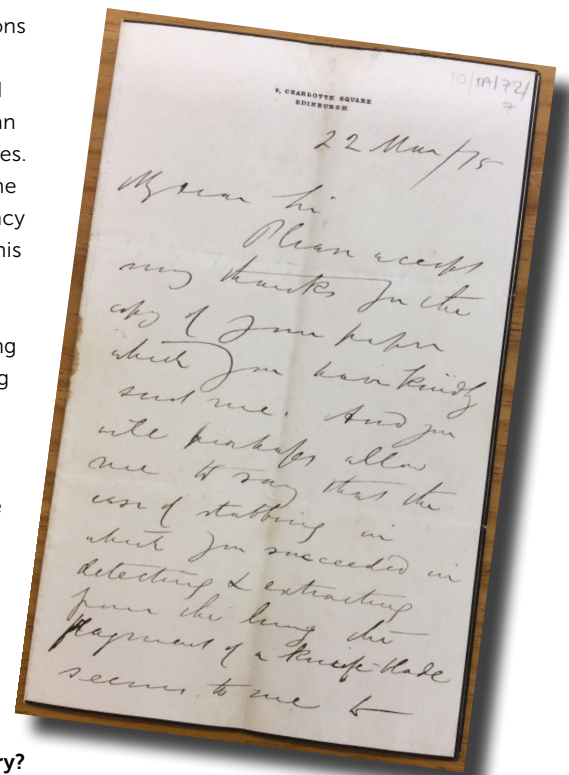 ons
an
es.
ne
ncy
his
ng
ng
ry?
10/1A/72/
7
9, CHARLOTTE SQUARE
EDINBURGH
22 Mar/75
My dear Sir
Please accept
my thanks for the
copy of your paper
which you have kindly
sent me. And you
will perhaps allow
me to say that the
case of stabbing in
which you succeeded in
detecting & extracting
from the lung the
fragment of a knife-blade
seems to me to